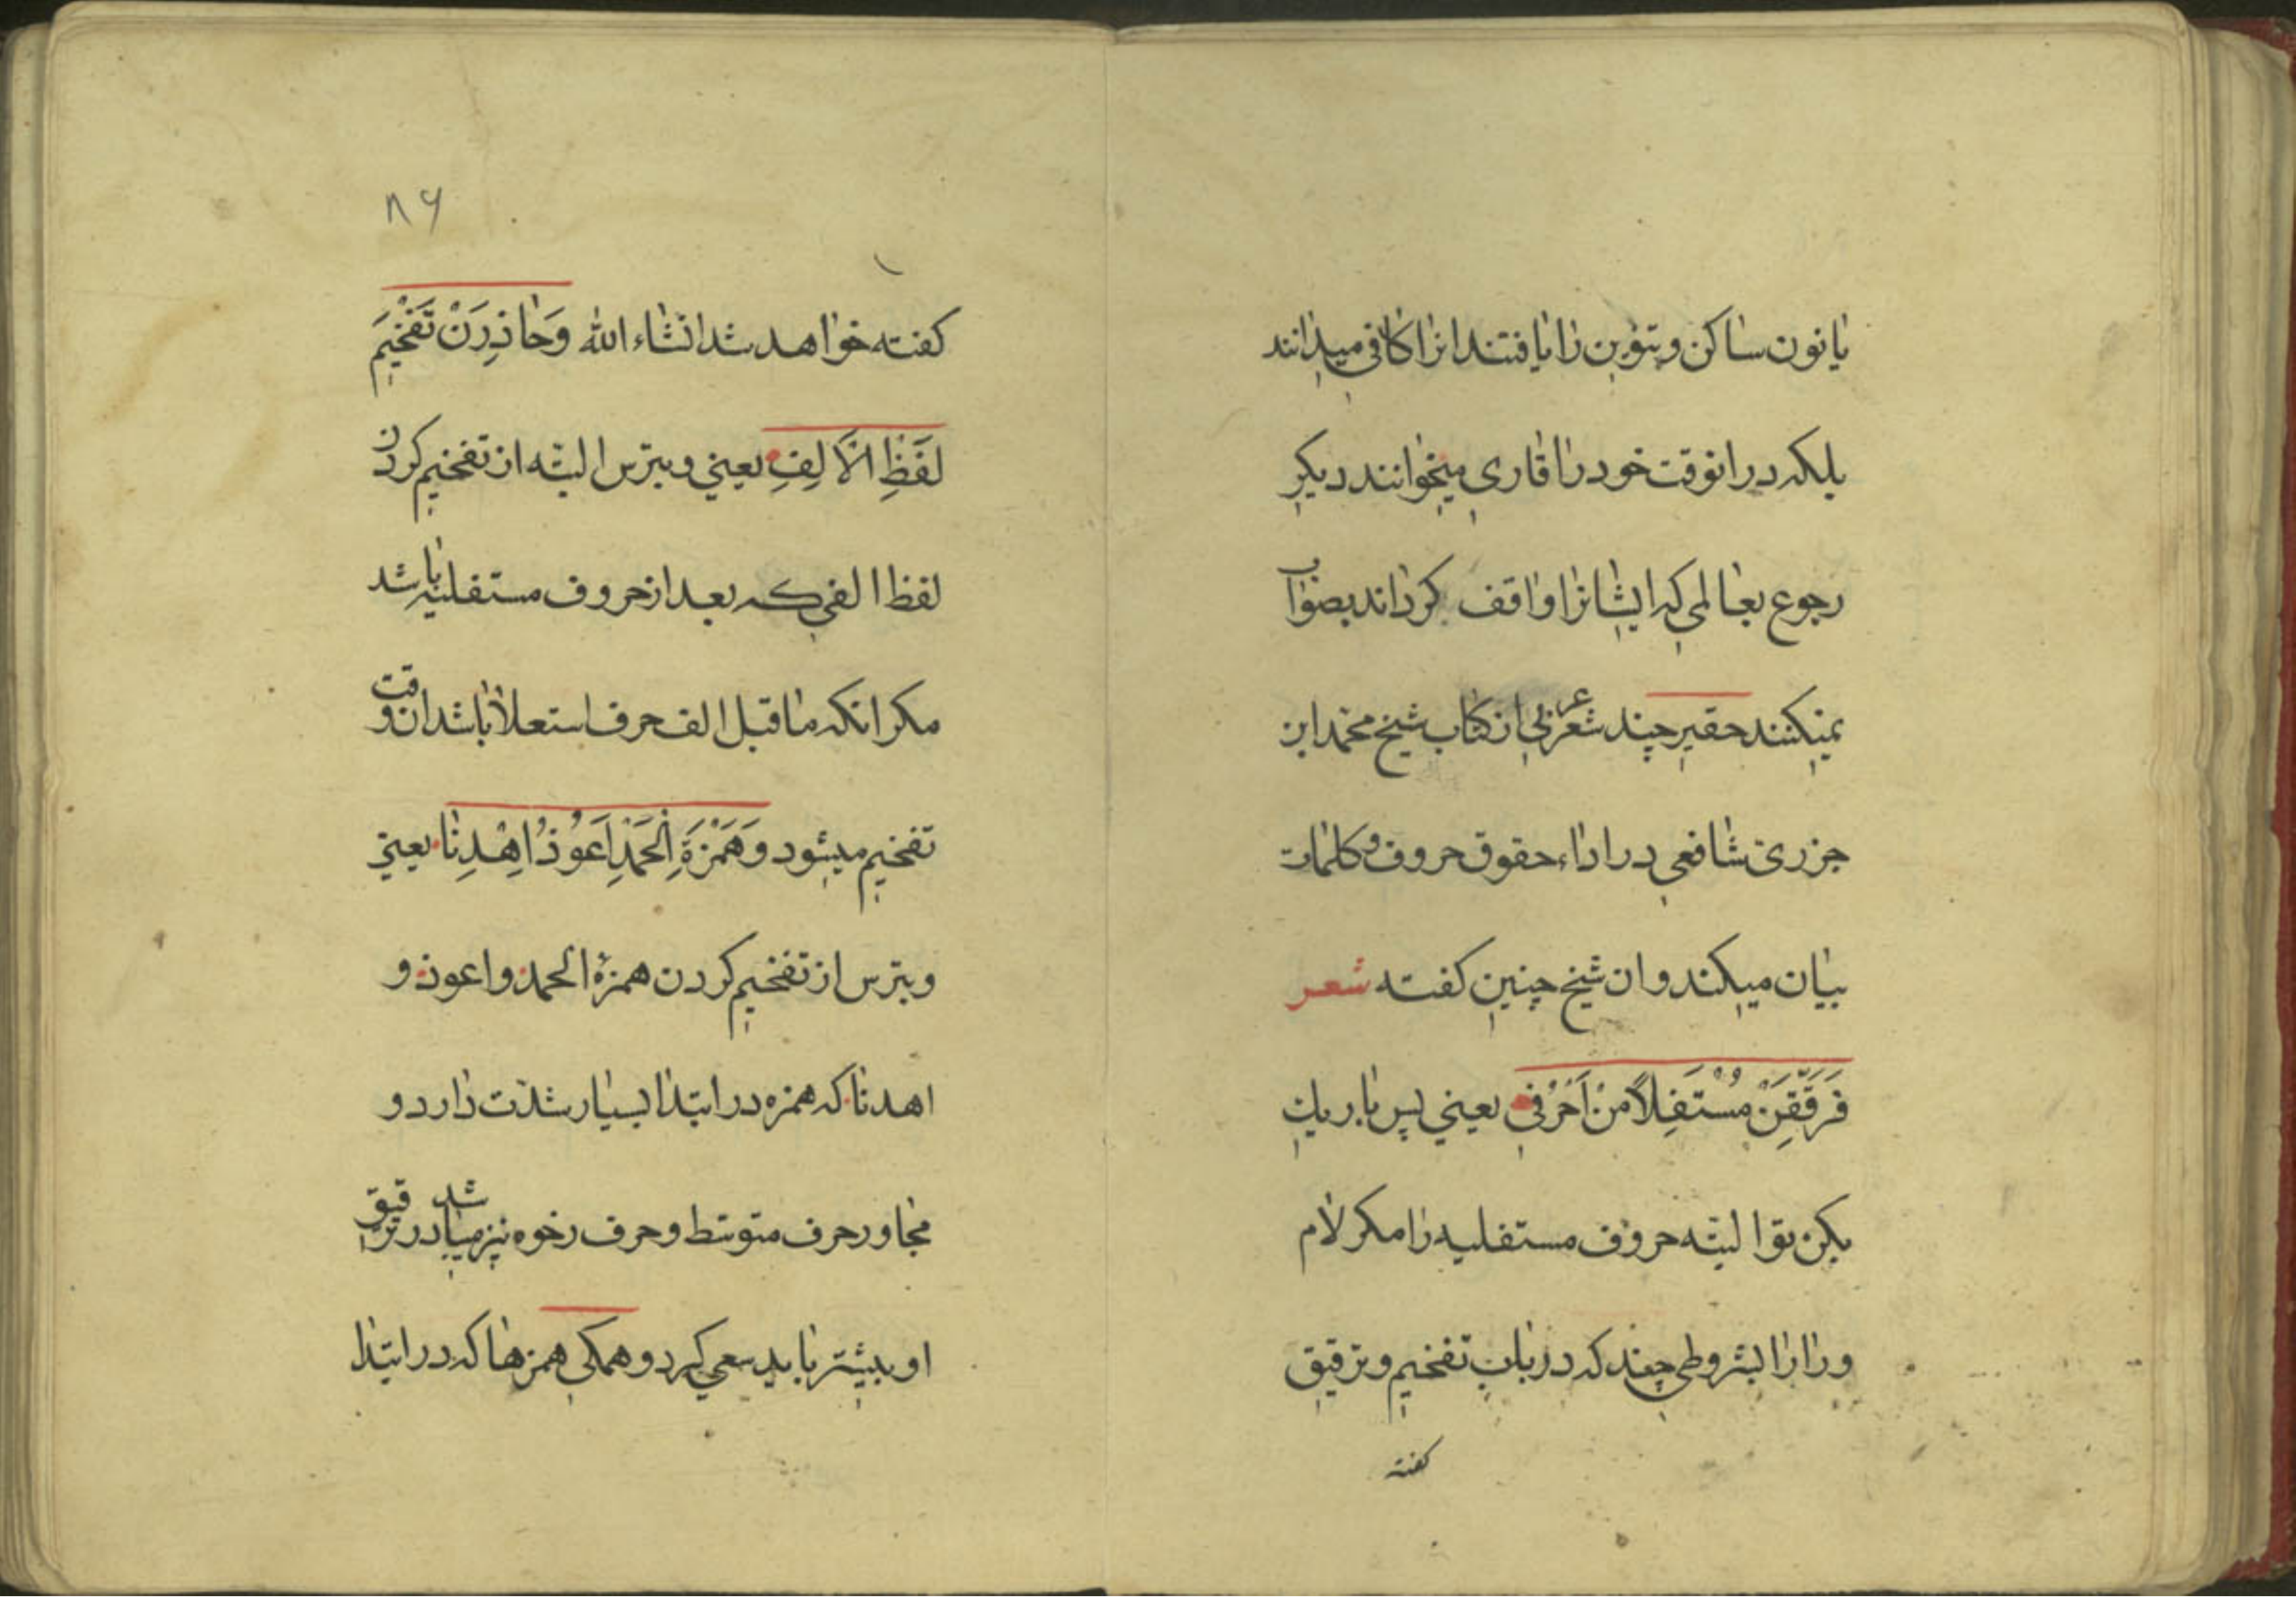 یا نون ساکن و تنوین را یافتند انرا کافی میدانند
بلکه درانوقت خود را قاری میخوانند دیکر
رجوع بعالمی که ایشانرا واقف کرداند بصواب
نمیکنند حقیر چند شعر عربی از کتاب شیخ محمد ابن
جزری شافعی در اداء حقوق حروف و کلمات
بیان میکند و ان شیخ چنین کفته شعر
فَرَقِّقَنْ مُسْتَفِلًا مِنْ اَحْرُفِ یعنی پس باریک
بکن تو البته حروف مستفلیه را مکر لام
و را را بشروطی چند که در باب تفخیم و ترقیق
کفته
۸۶
کفته خواهد شد انشاء الله وَحَاذِرَنْ تَفْخِیمَ
لَفْظِ الْاَلِفِ یعنی و بترس البته از تفخیم کردن
لفظ الفی که بعد از حروف مستفلیه باشد
مکر انکه ماقبل الف حرف استعلا باشد انوقت
تفخیم میشود وَهَمْزَةَ اَلْحَمْدِ اَعُوذُ اِهْدِنَا یعنی
و بترس از تفخیم کردن همزهٔ الحمد و اعوذ و
اهدنا که همزه در ابتدا بسیار شدّت دارد و
مجاور حرف متوسّط و حرف رخوه نیز میباشد در ترقیق
او بیشتر باید سعی کرد و همکی همزها که در ابتدا